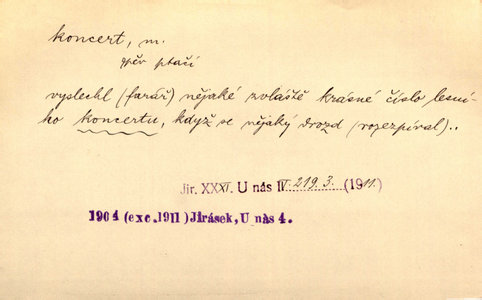 koncert, m.
zpěv ptačí
vyslechl (farář) nějaké zvláště krásné číslo lesní-
ho koncertu, když se nějaký drozd (rozezpíval)..
Jir. XXXI. U nás IV. 219. 3. (1911.)
1904 (exc. 1911) Jirásek, U nás 4.